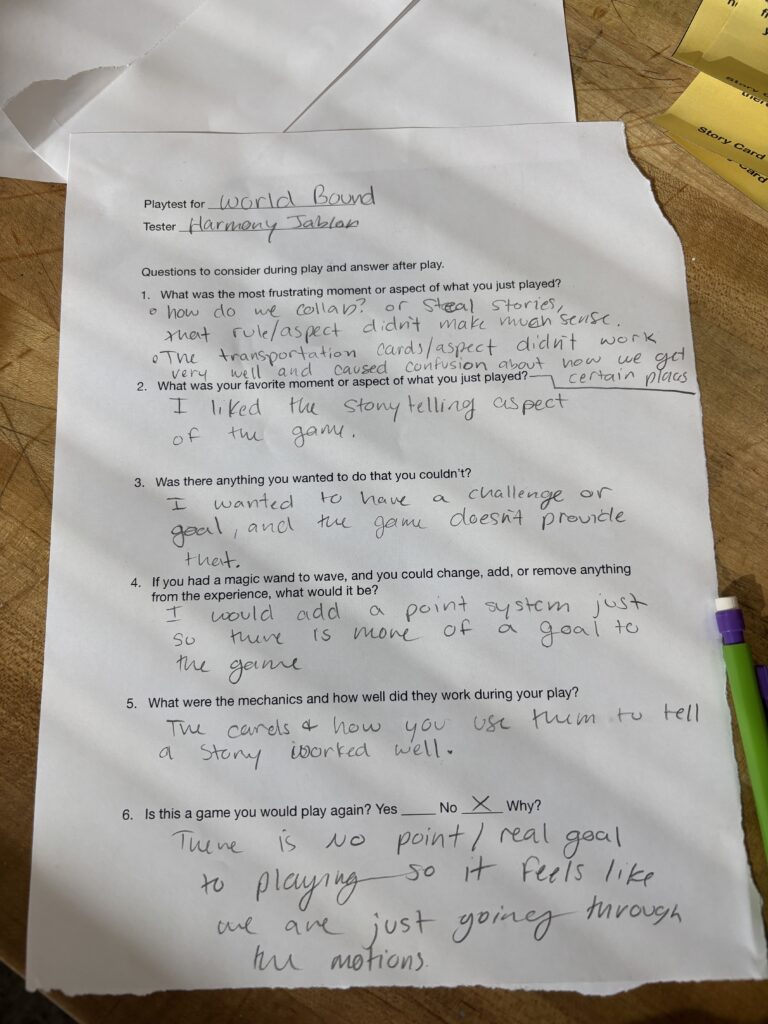 Story Card
Playtest for World Bound
Tester Harmony Jablon
Questions to consider during play and answer after play.
1. What was the most frustrating moment or aspect of what you just played?
how do we collab? or steal stories,
that rule/aspect didn't make much sense.
The transportation cards/aspect didn't work
very well and caused confusion about how we get
certain placs
2. What was your favorite moment or aspect of what you just played?
I liked the storytelling aspect
of the game.
3. Was there anything you wanted to do that you couldn't?
I wanted to have a challenge or
goal, and the game doesn't provide
that.
4. If you had a magic wand to wave, and you could change, add, or remove anything
from the experience, what would it be?
I would add a point system just
so there is more of a goal to
the game
5. What were the mechanics and how well did they work during your play?
The cards & how you use them to tell
a story worked well.
6. Is this a game you would play again? Yes ____ No X Why?
There is no point/real goal
to playing so it feels like
we are just going through
the motions.